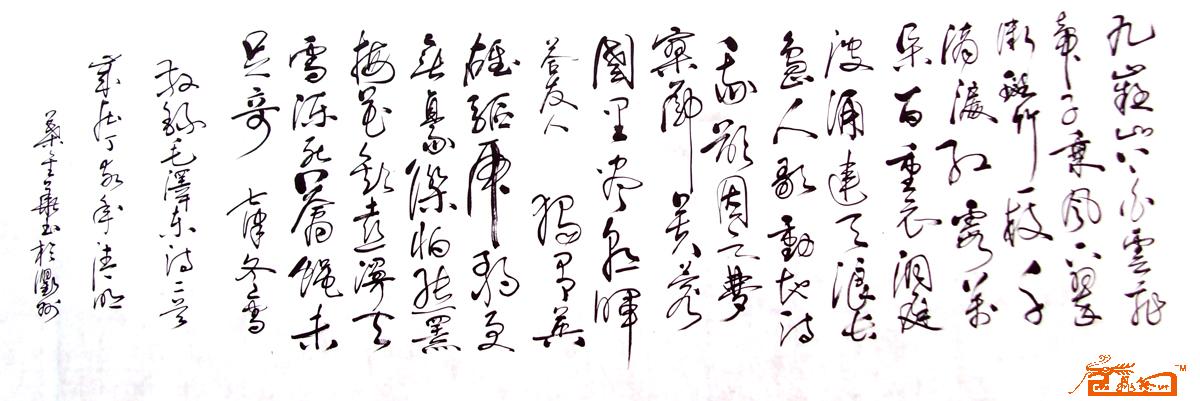 九嶷山上白雲飛
帝子乘風下翠
微斑竹一枝千
滴淚紅霞萬
朵百重衣洞庭
波涌連天浪長
島人歌動地詩
我欲因之夢
寥廓芙蓉
國里尽朝暉
答友人 獨有英
雄驅虎豹更
無豪傑怕熊羆
梅花歡喜漫天
雪凍死蒼蠅未
足奇 七律冬雲
敬錄毛澤東詩二首
歲在丁亥年清明
書於衢州